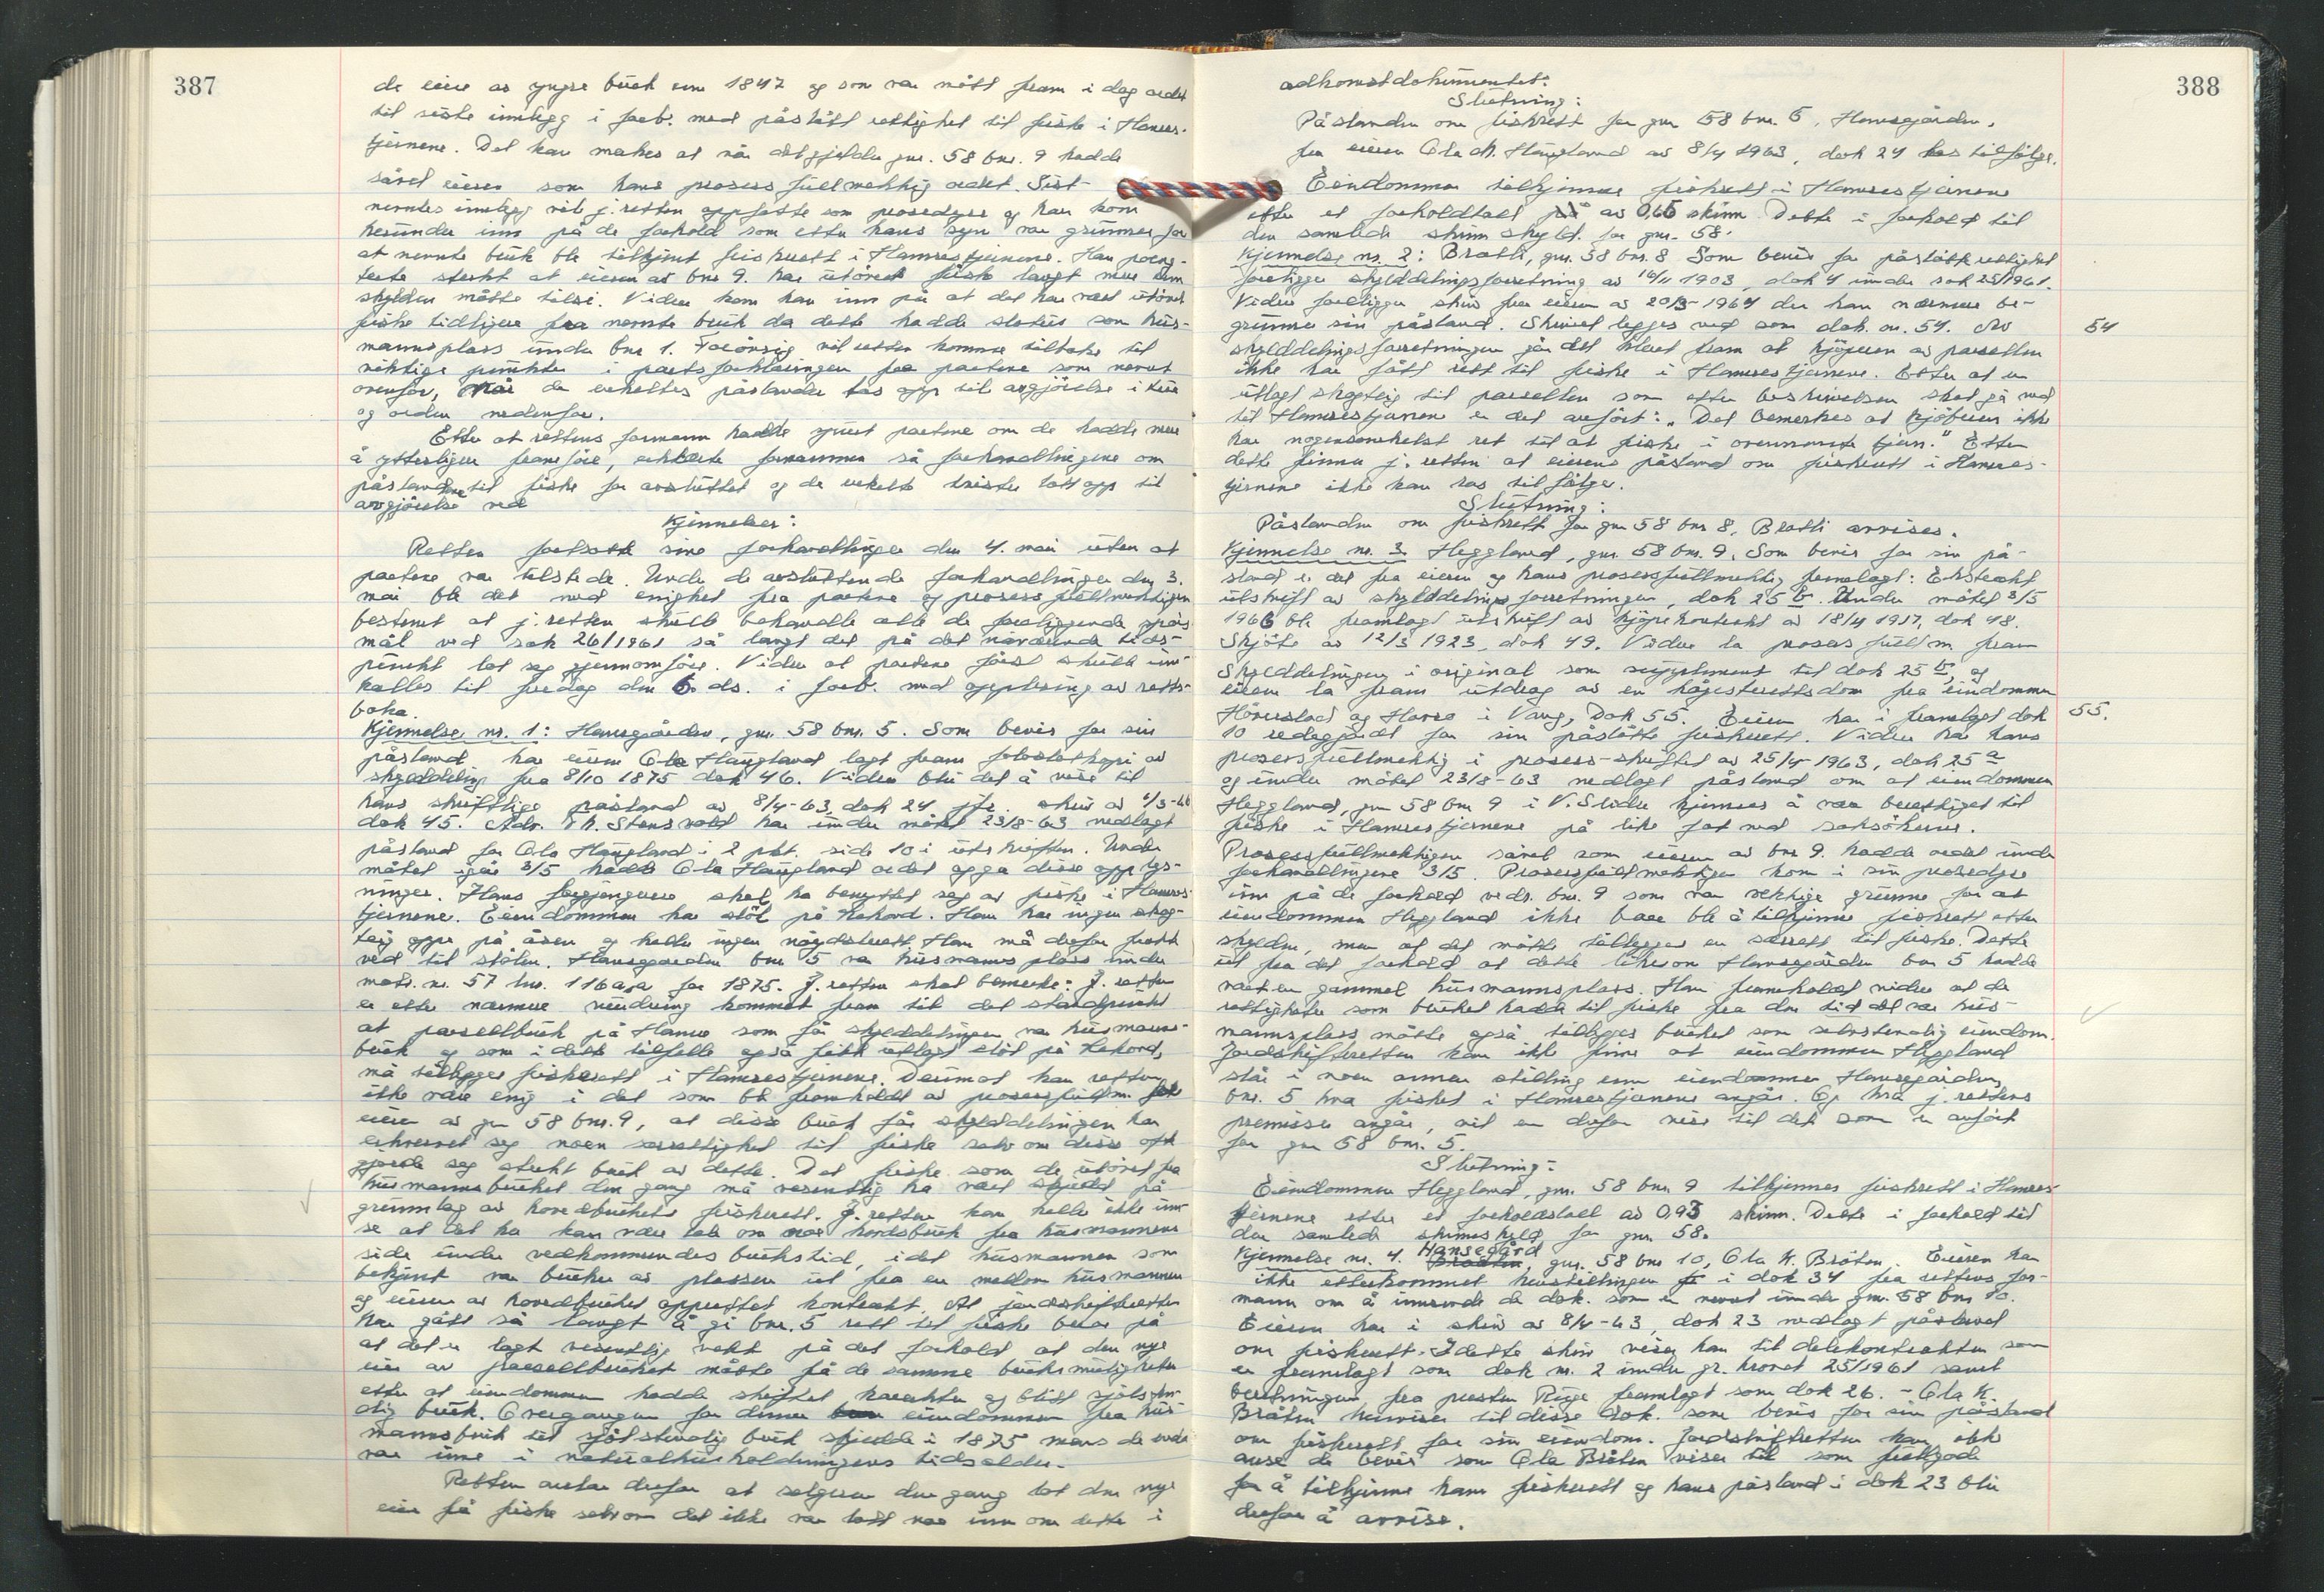 387
de eiere av yngre bruk enn 1847 og som var møtt fram i dag ordet
til siste innlegg i forb. med påstått rettighet til fiske i Hamres-
tjernene. Det kan merkes at når det gjelder gnr. 58 bnr. 9 hadde
såvel eieren som hans prosessfullmektig ordet. Sist-
nevntes innlegg vil j.retten oppfatte som prosedyre og han kom
herunder inn på de forhold som etter hans syn var grunner for
at nevnte bruk ble tilkjent fiskerett i Hamrestjernene. Han poeng-
terte sterkt at eieren av bnr 9. har utøvet fiske langt mere enn
skylden måtte tilsi. Videre kom han inn på at det har vært utøvet
fiske tidligere fra nevnte bruk da dette hadde status som hus-
mannsplass under bnr 1. Forøvrig vil retten komme tilbake til
viktige punkter i partsforklaringen fra partene som nevnt
ovenfor, når de enkeltes påstander tas opp til avgjørelse i tur
og orden nedenfor.
Etter at rettens formann hadde spurt partene om de hadde mere
å ytterligere framføre, erklærte formannen så forhandlingene om
påstandene til fiske for avsluttet og de enkelte tvister tatt opp til
avgjørelse ved
Kjennelser:
Retten fortsatte sine forhandlinger den 4. mai uten at
partene var tilstede. Under de avsluttende forhandlinger den 3.
mai ble det med enighet fra partene og prosessfullmektigen
bestemt at j.retten skulle behandle alle de foreliggende spørs-
mål ved sak 26/1961 så langt det på det nåværende tids-
punkt lot seg gjennomføre. Videre at partene først skulle inn-
kalles til fredag den 6. ds. i forb. med opplesing av retts-
boka.
Kjennelse nr. 1: Hansegården, gnr. 58 bnr. 5. Som bevis for sin
påstand har eieren Ola Haugland lagt fram fotostatkopi av
skylddeling fra 8/10 1875 dok 46. Videre blir det å vise til
hans skriftlige påstand av 8/4-63, dok 24 jfr. skriv av 1/3-66
dok 45. Adv. Th. Stensvold har under møtet 23/8-63 nedlagt
påstand for Ola Haugland i 2 pkt. side 10 i utskriften. Under
møtet igår 3/5 hadde Ola Haugland ordet og ga disse opplys-
ninger. Hans forgjengere skal ha benyttet seg av fiske i Hamres-
tjernene. Eiendommen har støl på Rekord. Han har ingen skog-
teig oppe på åsen og heller ingen nøydsrett. Han må derfor frakte
ved til stølen. Hansegården bnr 5 var husmannsplass under
matr. nr. 57 lnr. 116a,a før 1875. J.retten skal bemerke: J.retten
er etter nærmere vurdering kommet fram til det standpunkt
at parsellbruk på Hamre som før skylddelingen var husmanns-
bruk og som i dette tilfelle også fikk utlagt støl på Rekord,
må tillegges fiskerett i Hamrestjernene. Derimot kan retten
ikke være enig i det som ble framholdt av prosessfullm. for
eieren av gnr 58 bnr. 9, at disse bruk før skylddelingen har
ervervet seg noen særrettighet til fiske selv om disse ofte
gjorde seg sterkt bruk av dette. Det fiske som de utøvet fra
husmannsbruket den gang må vesentlig ha vært skjedd på
grunnlag av hovedbrukets fiskerett. J.retten kan heller ikke inn-
se at det ha kan være tale om noe hevdsbruk fra husmannens
side under vedkommendes brukstid, idet husmannen som
bekjent var bruker av plassen ut fra en mellom husmannen
og eieren av hovedbruket opprettet kontrakt. At jordskifteretten
har gått så langt å gi bnr. 5 rett til fiske beror på
at det er lagt vesentlig vekt på det forhold at den nye
eier av parsellbruket måtte få de samme bruksmuligheter
etter at eiendommen hadde skiftet karakter og blitt sjølsten-
dig bruk. Overgangen for denne eiendommen fra hus-
mannsbruk til sjølstendig bruk skjedde i 1875 mens de ennå
var inne i naturalhusholdningens tidsalder.
Retten antar derfor at selgeren den gang lot den nye
eier få fiske selv om det ikke var tatt noe inn om dette i
388
adkomstdokumentet.
Slutning:
Påstanden om fiskerett for gnr 58 bnr. 5, Hansegården,
fra eieren Ola M. Haugland av 8/4 1963, dok 24 tas tilfølge.
Eiendommen tilkjennes fiskerett i Hamrestjernene
etter et forholdstall av 0,66 skinn. Dette i forhold til
den samlede skinnskyld for gnr. 58.
Kjennelse nr. 2: Bratli, gnr. 58 bnr. 8. Som bevis for påstått rettighet
foreligger skylddelingsforretning av 16/11 1903, dok 4 under sak 25/1961.
Videre foreligger skriv fra eieren av 20/3-1964 der han nærmere be-
grunner sin påstand. Skrivet legges ved som dok. nr. 54. Av
54
skylddelingsforretningen går det klart fram at kjøperen av parsellen
ikke har fått rett til fiske i Hamrestjernene. Etter at en
utlagt skogteig til parsellen som etter beskrivelsen skal gå ned
til Hamrestjernene er det anført: „Det bemerkes at kjøberen ikke
har nogensomhelst ret til at fiske i ovennævnte tjern." Etter
dette finner j.retten at eierens påstand om fiskerett i Hamres-
tjernene ikke kan tas til følge.
Slutning:
Påstanden om fiskerett for gnr 58 bnr 8, Bratli avvises.
Kjennelse nr. 3. Heggland, gnr. 58 bnr. 9. Som bevis for sin på-
stand er det fra eieren og hans prosessfullmektig framlagt: Ekstrakt
utskrift av skylddelingsforretningen, dok 25 b. Under møtet 3/5
1966 ble framlagt utskrift av kjøpekontrakt av 18/4 1917, dok 48.
Skjøte av 12/3 1923, dok 49. Videre la prosessfullm. fram
Skylddelingen i original som supplement til dok 25 b, og
eieren la fram utdrag av en høgesterettsdom fra eiendommen
Høverstad og Hovso i Vang, Dok 55. Eieren har i framlegg dok
55.
10 redegjort for sin påståtte fiskerett. Videre har hans
prosessfullmektig i prosess-skriftet av 25/4-1963, dok 25 a
og under møtet 23/8-63 nedlagt påstand om at eiendommen
Heggland, gnr 58 bnr 9 i V.Slidre kjennes å være berettiget til
fiske i Hamrestjernene på like fot med saksøkerne.
Prosessfullmektigen såvel som eieren av bnr 9. hadde ordet under
forhandlingene 3/5. Prosessfullmektigen kom i sin prosedyre
inn på de forhold vedr. bnr. 9 som var viktige grunner for at
eiendommen Heggland ikke bare ble å tilkjenne fiskerett etter
skylden, men at det måtte tillegges en særrett til fiske. Dette
ut fra det forhold at dette liksom Hansegården bnr 5 hadde
vært en gammel husmannsplass. Han framholdt videre at de
rettigheter som bruket hadde til fiske fra den tid det var hus-
mannsplass måtte også tillegges bruket som selvstendig eiendom.
Jordskifteretten kan ikke finne at eiendommen Heggland
står i noen annen stilling enn eiendommen Hansegården,
bnr. 5 hva fisket i Hamrestjernene angår. Og hva j.rettens
premisser angår, vil en derfor vise til det som er anført
for gnr 58 bnr. 5.
Slutning:
Eiendommen Heggland, gnr. 58 bnr. 9 tilkjennes fiskerett i Hamres-
tjernene etter et forholdstall av 0,93 skinn. Dette i forhold til
den samlede skinnskyld for gnr 58.
Kjennelse nr. 4. Hansegård, gnr. 58 bnr 10, Ola K. Bråten. Eieren har
ikke etterkommet henstillingen i dok 34 fra rettens for-
mann om å innsende de dok. som er nevnt under gnr. 58 bnr 10.
Eieren har i skriv av 8/4-63, dok 23 nedlagt påstand
om fiskerett. I dette skriv viser han til delekontrakten som
er framlagt som dok nr. 2 under gr. krevet 25/1961 samt
beretningen fra presten Ruge framlagt som dok 26. - Ola K.
Bråten henviser til disse dok. som bevis for sin påstand
om fiskerett for sin eiendom. Jordskifteretten kan ikke
anse de bevis som Ola Bråten viser til som fullgode
for å tilkjenne ham fiskerett og hans påstand i dok 23 blir
derfor å avvise.